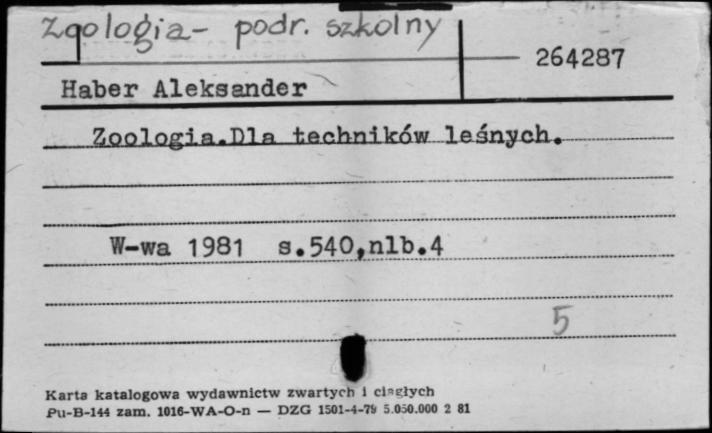 Zoologia - podr. szkolny
264287
Haber Aleksander
Zoologia.Dla techników leśnych.
W-wa 1981 s.540,nlb.4
5
Karta katalogowa wydawnictw zwartych i ciągłych
Pu-B-144 zam. 1016-WA-O-n — DZG 1501-4-79 5.050.000 2 81